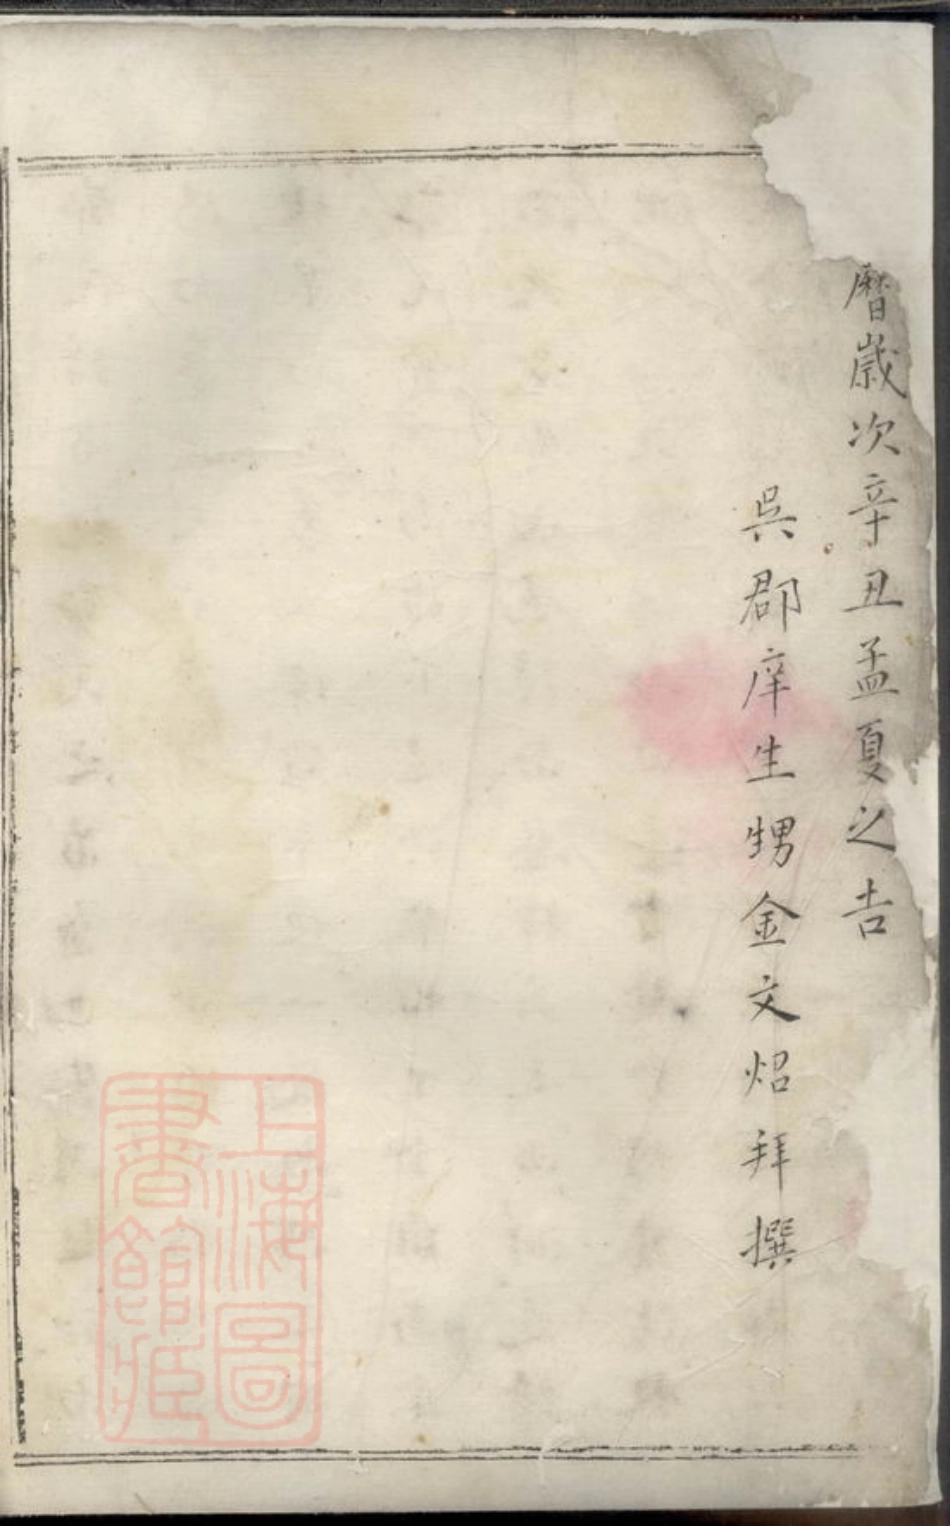 曆歲次辛丑孟夏之吉
吳郡庠生甥金文炤拜撰
上海圖書館藏